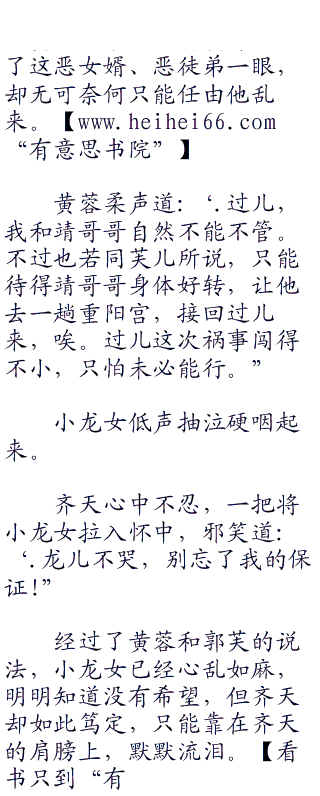 了这恶女婿、恶徒弟一眼，
却无可奈何只能任由他乱
来。【www.heihei66.com
“有意思书院”】
黄蓉柔声道：‘.过儿，
我和靖哥哥自然不能不管。
不过也若同芙儿所说，只能
待得靖哥哥身体好转，让他
去一趟重阳宫，接回过儿
来，唉。过儿这次祸事闯得
不小，只怕未必能行。”
小龙女低声抽泣硬咽起
来。
齐天心中不忍，一把将
小龙女拉入怀中，邪笑道：
‘.龙儿不哭，别忘了我的保
证!”
经过了黄蓉和郭芙的说
法，小龙女已经心乱如麻，
明明知道没有希望，但齐天
却如此笃定，只能靠在齐天
的肩膀上，默默流泪。【看
书只到“有